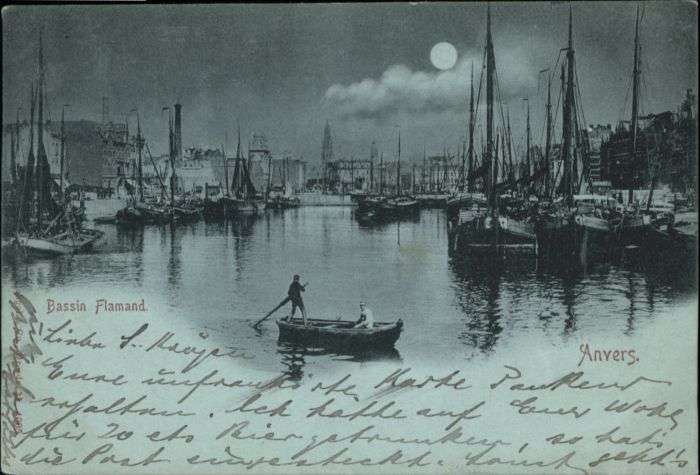 Bassin Flamand.
Anvers.
Liebe
Eure unfrankirte Karte Dankend
erhalten. Ich hätte auf Euer Wohl
für 20 cts Bier getrunken, so hat's
die Post eingesteckt. Sonst geht's